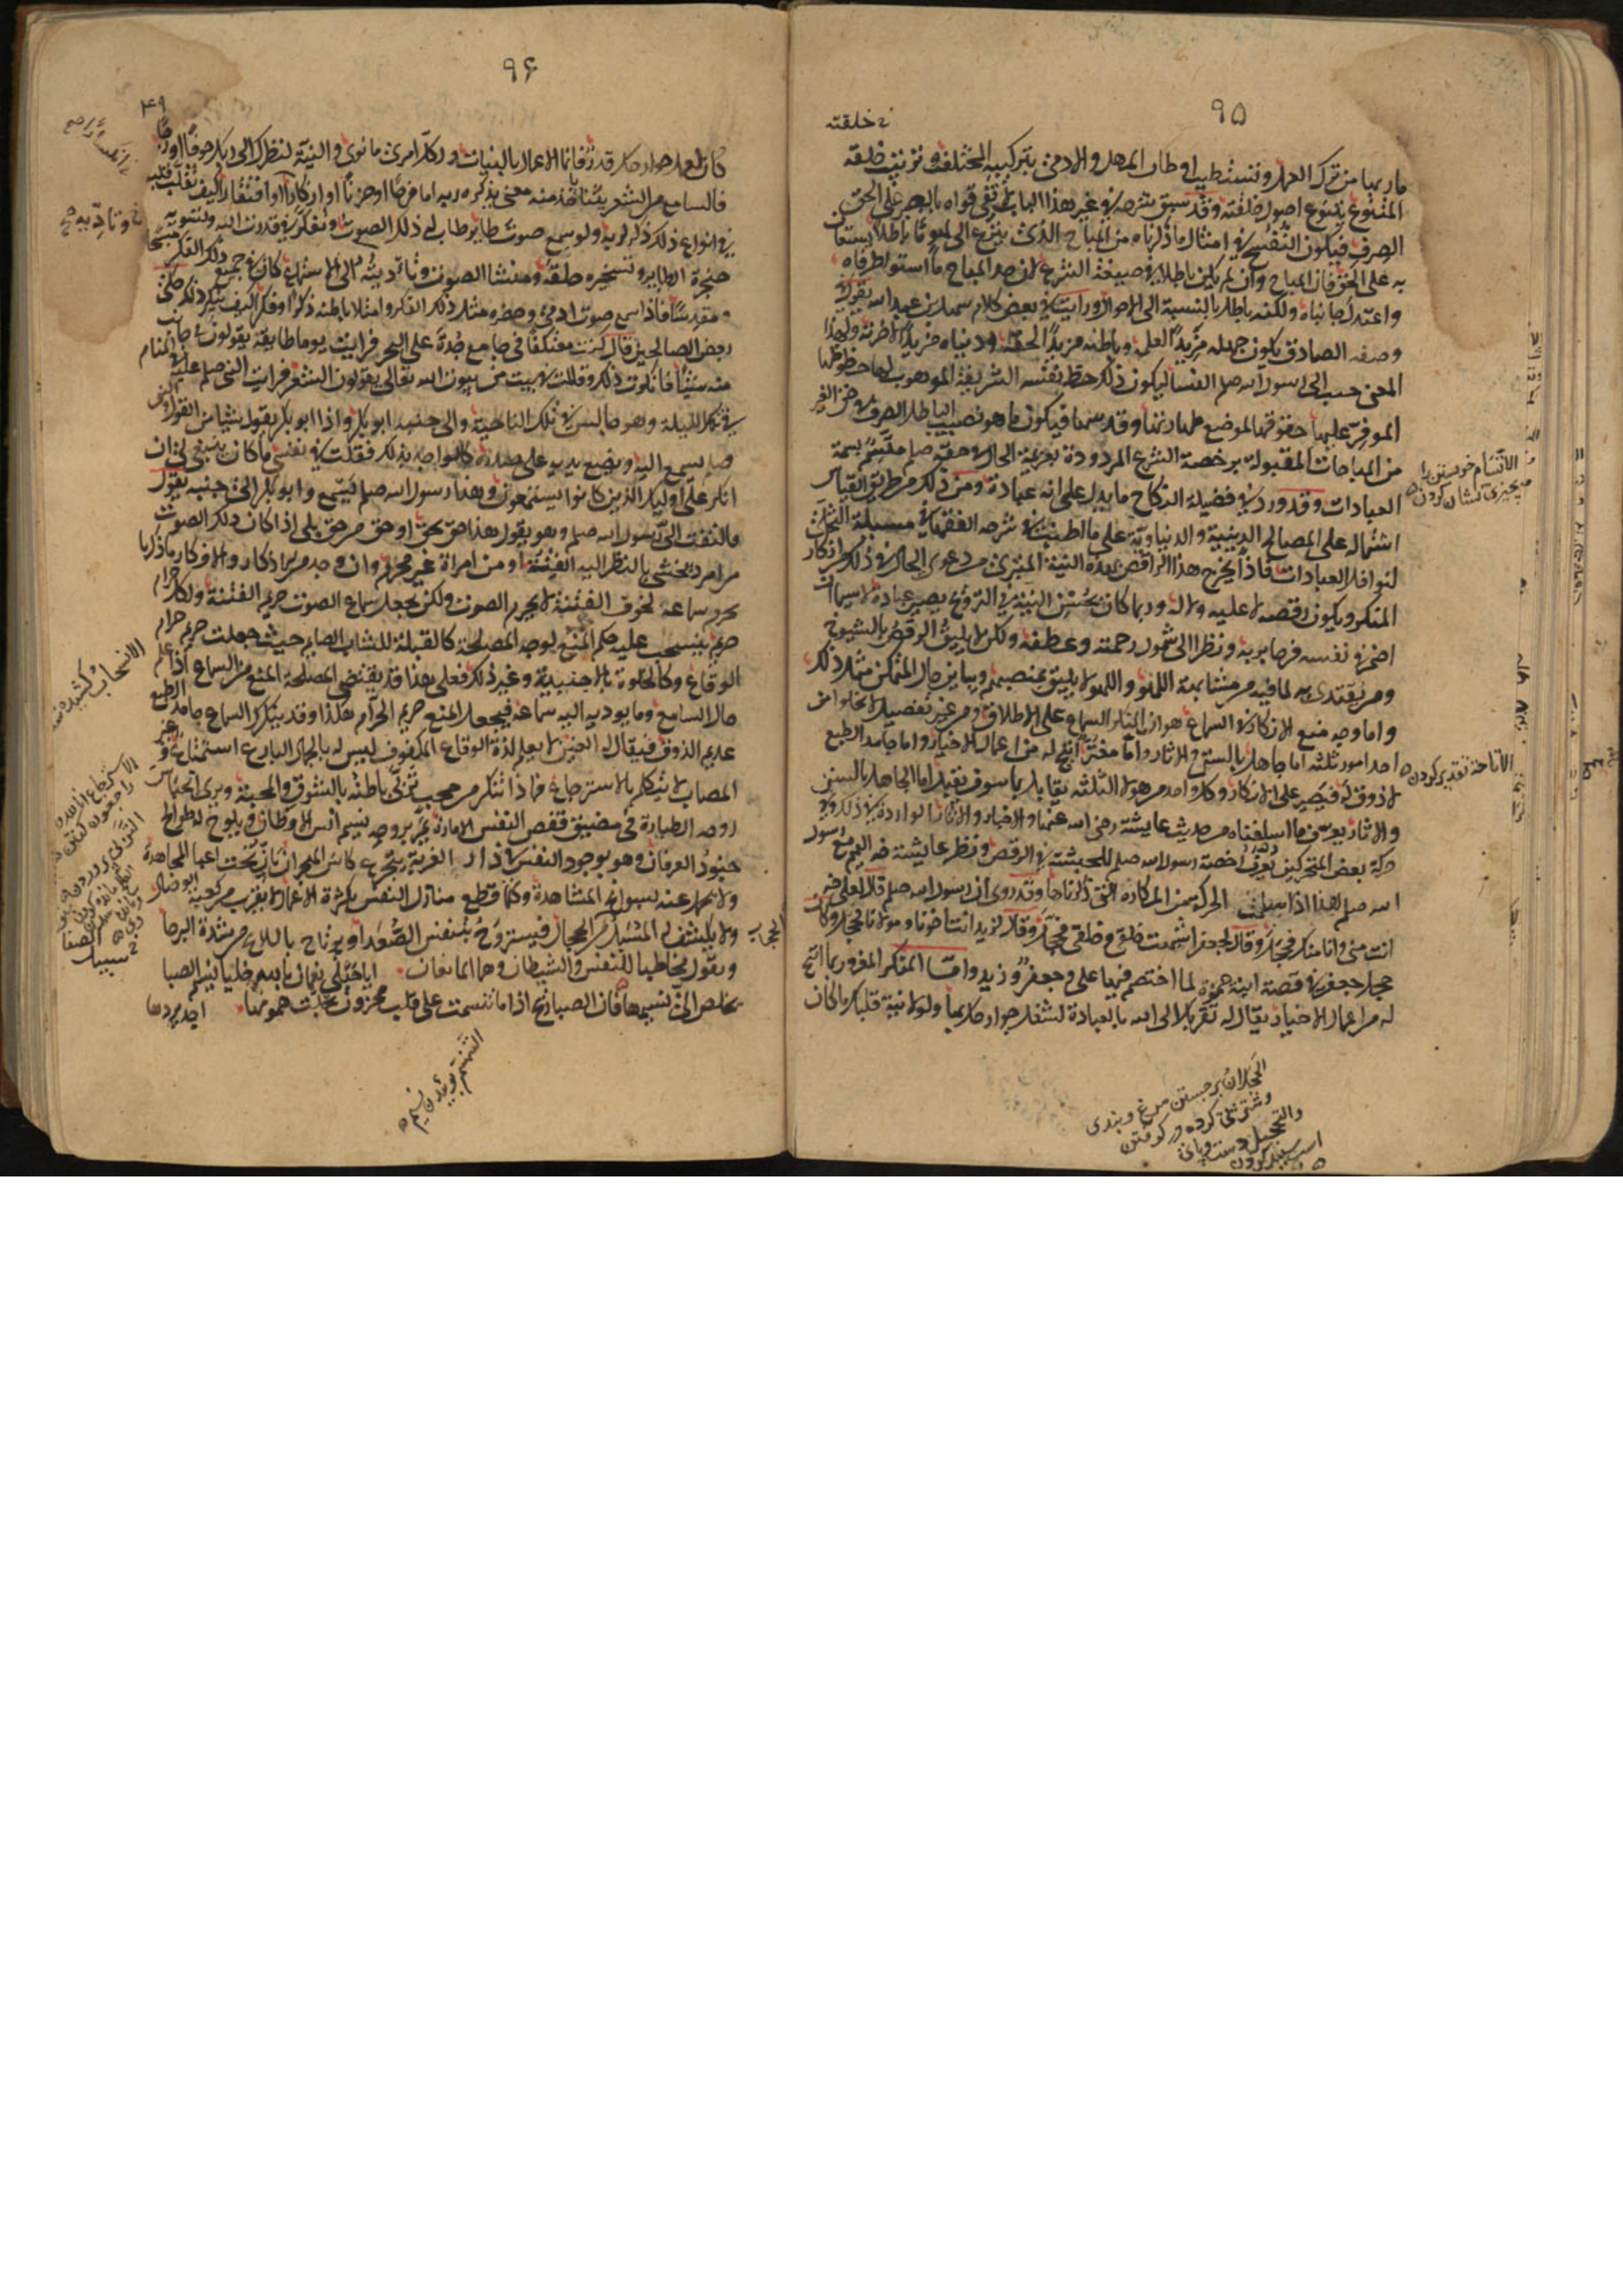 ٩٥
خلقته
ما ربما من ترك العمل وتستطيب اوطان المهل والادمى بتركيبه المختلف وترتيب خلقه
المتنوع بتنوع اصول خلقته وقد سبق شرحه فى غير هذا الباب لا تفى قواه بالصبر على الحق
الصرف فيكون التفسح فى امثال ما ذكرناه من المباح الذى ينزع الى لهو ما باطلا يستعان
به على الحق فان المباح وان لم يكن باطلا فى صيغة الشرع لان حد المباح ما استوى طرفاه
واعتدل جانباه ولكنه باطل بالنسبة الى الاحوال ورايت فى بعض كلام سهل بن عبد الله يقول فى
وصفه الصادق يكون جهله مزيدا لعلمه وباطله مزيدا لحقه ودنياه مزيدا لاخرته ولهذا
المعنى حبب الى رسول الله صلعم النساء ليكون ذلك حظ نفسه الشريفة الموهوب لها حظوظها
الموفر عليها حقوقها لموضع طهارتها وقدسها فيكون ما هو نصيب الباطل الصرف فى حق الغير
من المباحات المقبولة برخصة الشرع المردودة بعزيمة الحال فى حقه صلعم متسما بسمة
العبادات وقد ورد فى فضيلة النكاح ما يدل على انه عبادة ومن ذلك من طريق القياس
اشتماله على المصالح الدينية والدنياوية على ما اطنب فى شرحه الفقهاء فى مسئلة التخلى
لنوافل العبادات فاذا يخرج هذا الراقص بهذه النية المتبرئ من دعوى الحال فى ذلك من انكار
المنكر ويكون رقصه لا عليه ولا له وربما كان بحسن النية فى الترويح يصير عبادة لا سيما ان
اضمر فى نفسه فرحا بربه ونظر الى شمول رحمته وعطفه ولكن لا يليق الرقص بالشيوخ
ومن يقتدى به لما فيه من مشابهة اللهو واللهو لا يليق بمنصبهم ويباين حال المتمكن مثل ذلك
واما وجه منع الانكار فى السماع هو ان المنكر للسماع على الاطلاق من غير تفصيل لا يخلو من
احد امور ثلثه اما جاهل بالسنن والاثار واما مغتر بما اتيح له من اعمال الاخيار واما جامد الطبع
لا ذوق له فيصر على الانكار وكل واحد من هولا الثلثه يقابل بما سوف نقبل اما الجاهل بالسنن
والاثار يعرف بما اسلفناه من حديث عايشة رضى الله عنها والاخبار والاثار الواردة فى ذلك وفى
حركة بعض المتحركين يعرف رخصة رسول الله صلعم للحبشة فى الرقص ونظر عايشة اليهم مع رسول
الله صلعم هذا اذا سلمت الحركة من المكاره التى ذكرناها وقد روى ان رسول الله صلعم قال لعلى
انت منى وانا منك فحجل وقال لجعفر اشبهت خلقى وخلقى فحجل وقال لزيد انت اخونا ومولانا فحجل وكان
حجل جعفر فى قصة ابنة حمزة لما اختصم فيها على وجعفر وزيد واما المنكر المغرور بما اتيح
له من اعمال الاخيار يقال له تقربك الى الله بالعبادة لشغل جوارحك بها ولولا نية قلبك ما كان
الاتسام خويشتن را بچيزى نشان كردن
الاتاحة تقدير كردن
الحجلان برجستن مرغ وبندى
٩۶
۴۹
كان لعمل جوارحك قدر فانما الاعمال بالنيات ولكل امرئ ما نوى والنية لنظرك الى ربك خوفا او رجا
فالسامع من الشعر بيتا ياخذ منه معنى يذكره ربه اما فرحا او حزنا او انكسارا او افتقارا كيف يقلب قلبه
فى انواع ذلك ذكر لربه ولو سمع صوت طاير طاب له ذلك الصوت وتفكر فى قدرت الله وتسويه
حنجرة الطاير وتسخيره حلقه ومنشا الصوت وتاديته الى الاسماع كان فى جميع ذلك الفكر مسبحا
مقدسا فاذا سمع صوت ادمى وحضره مثل ذلك الفكر وامتلا باطنه ذكرا وفكرا كيف ينكر ذلك حكى
بعض الصالحين قال كنت معتكفا فى جامع جدة على البحر فرايت يوما طايفة يقولون فى جانب
منه شيئا فانكرت ذلك وقلت فى بيت من بيوت الله تعالى يقولون الشعر فرايت النبى صلعم فى المنام
فى تلك الليلة وهو جالس فى تلك الناحية والى جنبه ابو بكر واذا ابو بكر يقول شيا من القول والنبى
صلعم يسمع اليه ويضع يده على صدره كالواجد بذلك فقلت فى نفسى ما كان ينبغى لى ان
انكر على اوليك الذين كانوا يستمعون وهذا رسول الله صلعم يسمع وابو بكر الى جنبه يقول
فالتفت الى رسول الله صلعم وهو يقول هذا حق بحق او حق من حق بلى اذا كان ذلك الصوت
من امرد يخشى بالنظر اليه الفتنة او من امراة غير محرم وان وجد من الاذكار والافكار ما ذكرنا
يحرم سماعه لخوف الفتنة لا لمجرد الصوت ولكن يجعل سماع الصوت حريم الفتنة ولكل حرام
حريم ينسحب عليه حكم المنع لوجه المصلحة كالقبلة للشاب الصايم حيث جعلت حريم حرام
الوقاع وكالخلوة بالاجنبية وغير ذلك فعلى هذا قد يقتضى المصلحة المنع من السماع اذا علم
حال السامع وما يوديه اليه سماعه فيجعل المنع حريم الحرام هكذا وقد ينكر السماع جامد الطبع
عديم الذوق فيقال له العنين لا يعلم لذة الوقاع والمكفوف ليس له بالجمال البارع استمتاع وغير
المصاب لا يتكلم بالاسترجاع فماذا تنكر من محب تربى باطنه بالشوق والمحبة ويرى انحباس
روحه الطيارة فى مضيق قفص النفس الامارة يمر بروحه نسيم انس الاوطان ويلوح له طوالع
جنود العرفان وهو بوجود النفس فى دار الغربة يتجرع كاس الهجران يان تحت اعبا المجاهدة
ولا يحمل عنه سوانح المشاهدة وكلما قطع منازل النفس بكثرة الاعمال لا يقرب من كعبة الوصال
ولا يكشف له المسبل من الحجاب فيستروح بتنفس الصعدا ويرتاح باللائح من شدة البرحا
ويقول مخاطبا للنفس والشيطان وهما المانعان ايا جبلى نعمان بالله خليا نسيم الصبا
يخلص الى نسيمها فان الصبا ريح اذا ما تنسمت على قلب محزون تجلت همومها اجد بردها
الانسحاب كشيده شدن
التنسم بوييدن نسيم